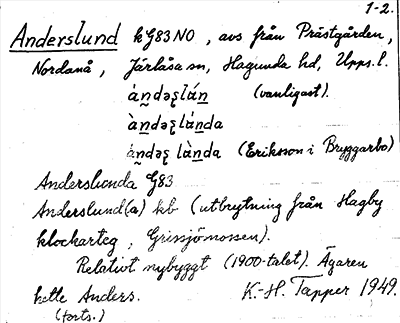 1-2.
Anderslund k G83 NO, avs från Prästgården,
Nordanå, Järlåsa sn, Hagunda hd, Upps. l.
án̰dəʂlán̲ (vanligast).
àn̲dəʂlán̲da
án̰dəʂ làn̲da (Eriksson i Bryggarbo)
Anderslunda G83
Anderslund(a) kb (utbrytning från Hagby
klockareg, Grissjömossen).
Relativt nybyggt (1900-talet). Ägaren
hette Anders. K.-H. Tapper 1949.
(forts.)